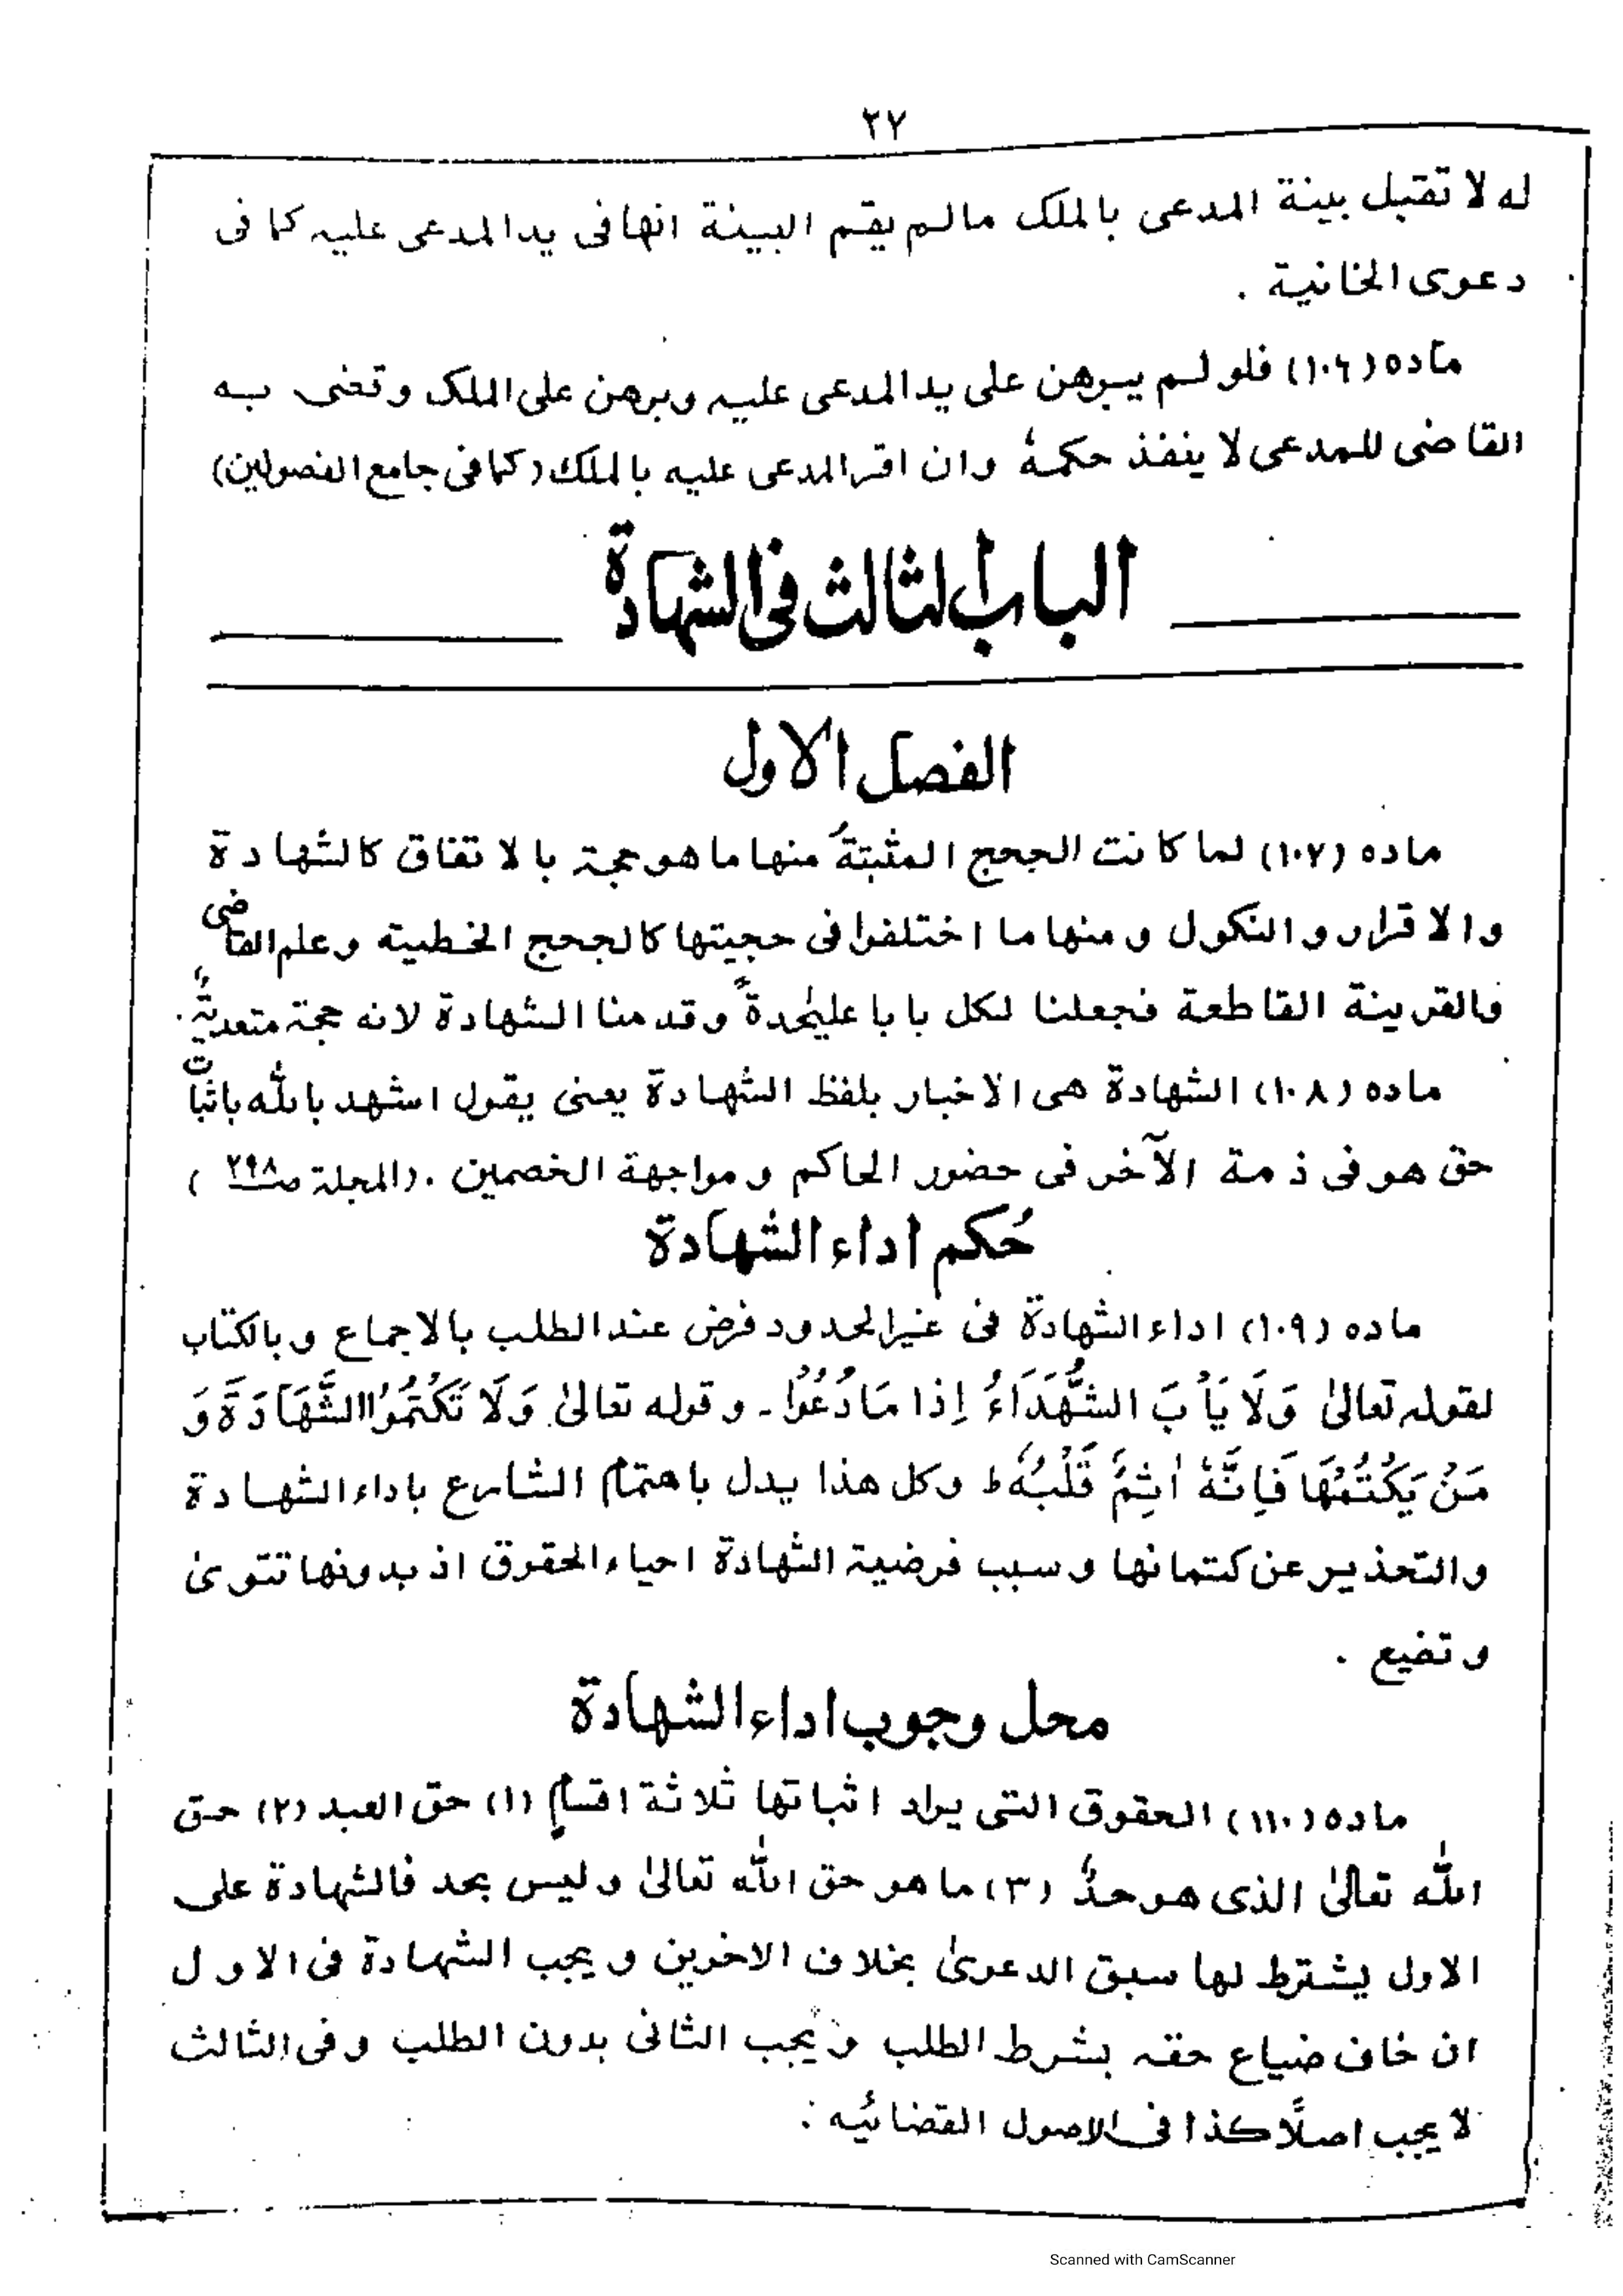 ٢٧
له لا تقبل بينة المدعى بالملك مالم يقم البينة انها فى يد المدعى عليه كما فى
دعوى الخانية .
ماده (١٠٦) فلو لم يبرهن على يد المدعى عليه وبرهن على الملك وقضى به
القاضى للمدعى لا ينفذ حكمهٗ وان اقر المدعى عليه بالملك (كما فى جامع الفصولين)
الباب الثالث فى الشهادة
الفصل الاول
ماده (١٠٧) لما كانت الحجج المثبتةُ منها ما هو حجة بالاتفاق كالشهادة
والاقرار والنكول ومنها ما اختلفوا فى حجيتها كالحجج الخطية وعلم القاضى
والقرينة القاطعة فجعلنا لكل بابا عليٰحدةً وقدمنا الشهادة لانه حجة متعديةٌ .
ماده (١٠٨) الشهادة هى الاخبار بلفظ الشهادة يعنى يقول اشهد بالله باثبات
حق هو فى ذمة الآخر فى حضور الحاكم ومواجهة الخصمين . (المجلة صـ ٢٩٨ )
حُكم اداء الشهادة
ماده (١٠٩) اداء الشهادة فى غير الحدود فرض عند الطلب بالاجماع وبالكتاب
لقوله تعالىٰ وَلَا يَأْبَ الشُّهَدَاءُ اِذَا مَا دُعُوْا ـ وقوله تعالىٰ وَلَا تَكْتُمُوْا الشَّهَادَةَ وَ
مَنْ يَكْتُمْهَا فَاِنَّهٗ اٰثِمٌ قَلْبُهٗ ط وكل هذا يدل باهتمام الشارع باداء الشهادة
والتحذير عن كتمانها وسبب فرضية الشهادة احياء الحقوق اذ بدونها تتوىٰ
وتضيع .
محل وجوب اداء الشهادة
ماده (١١٠) الحقوق التى يراد اثباتها ثلاثة اقسامٍ (١) حق العبد (٢) حق
الله تعالىٰ الذى هو حدٌ (٣) ما هو حق الله تعالىٰ وليس بحد فالشهادة على
الاول يشترط لها سبق الدعوىٰ بخلاف الاخرين ويجب الشهادة فى الاول
ان خاف ضياع حقه بشرط الطلب ويجب الثانى بدون الطلب وفى الثالث
لا يجب اصلًا كذا فى الاصول القضائيه :
Scanned with CamScanner